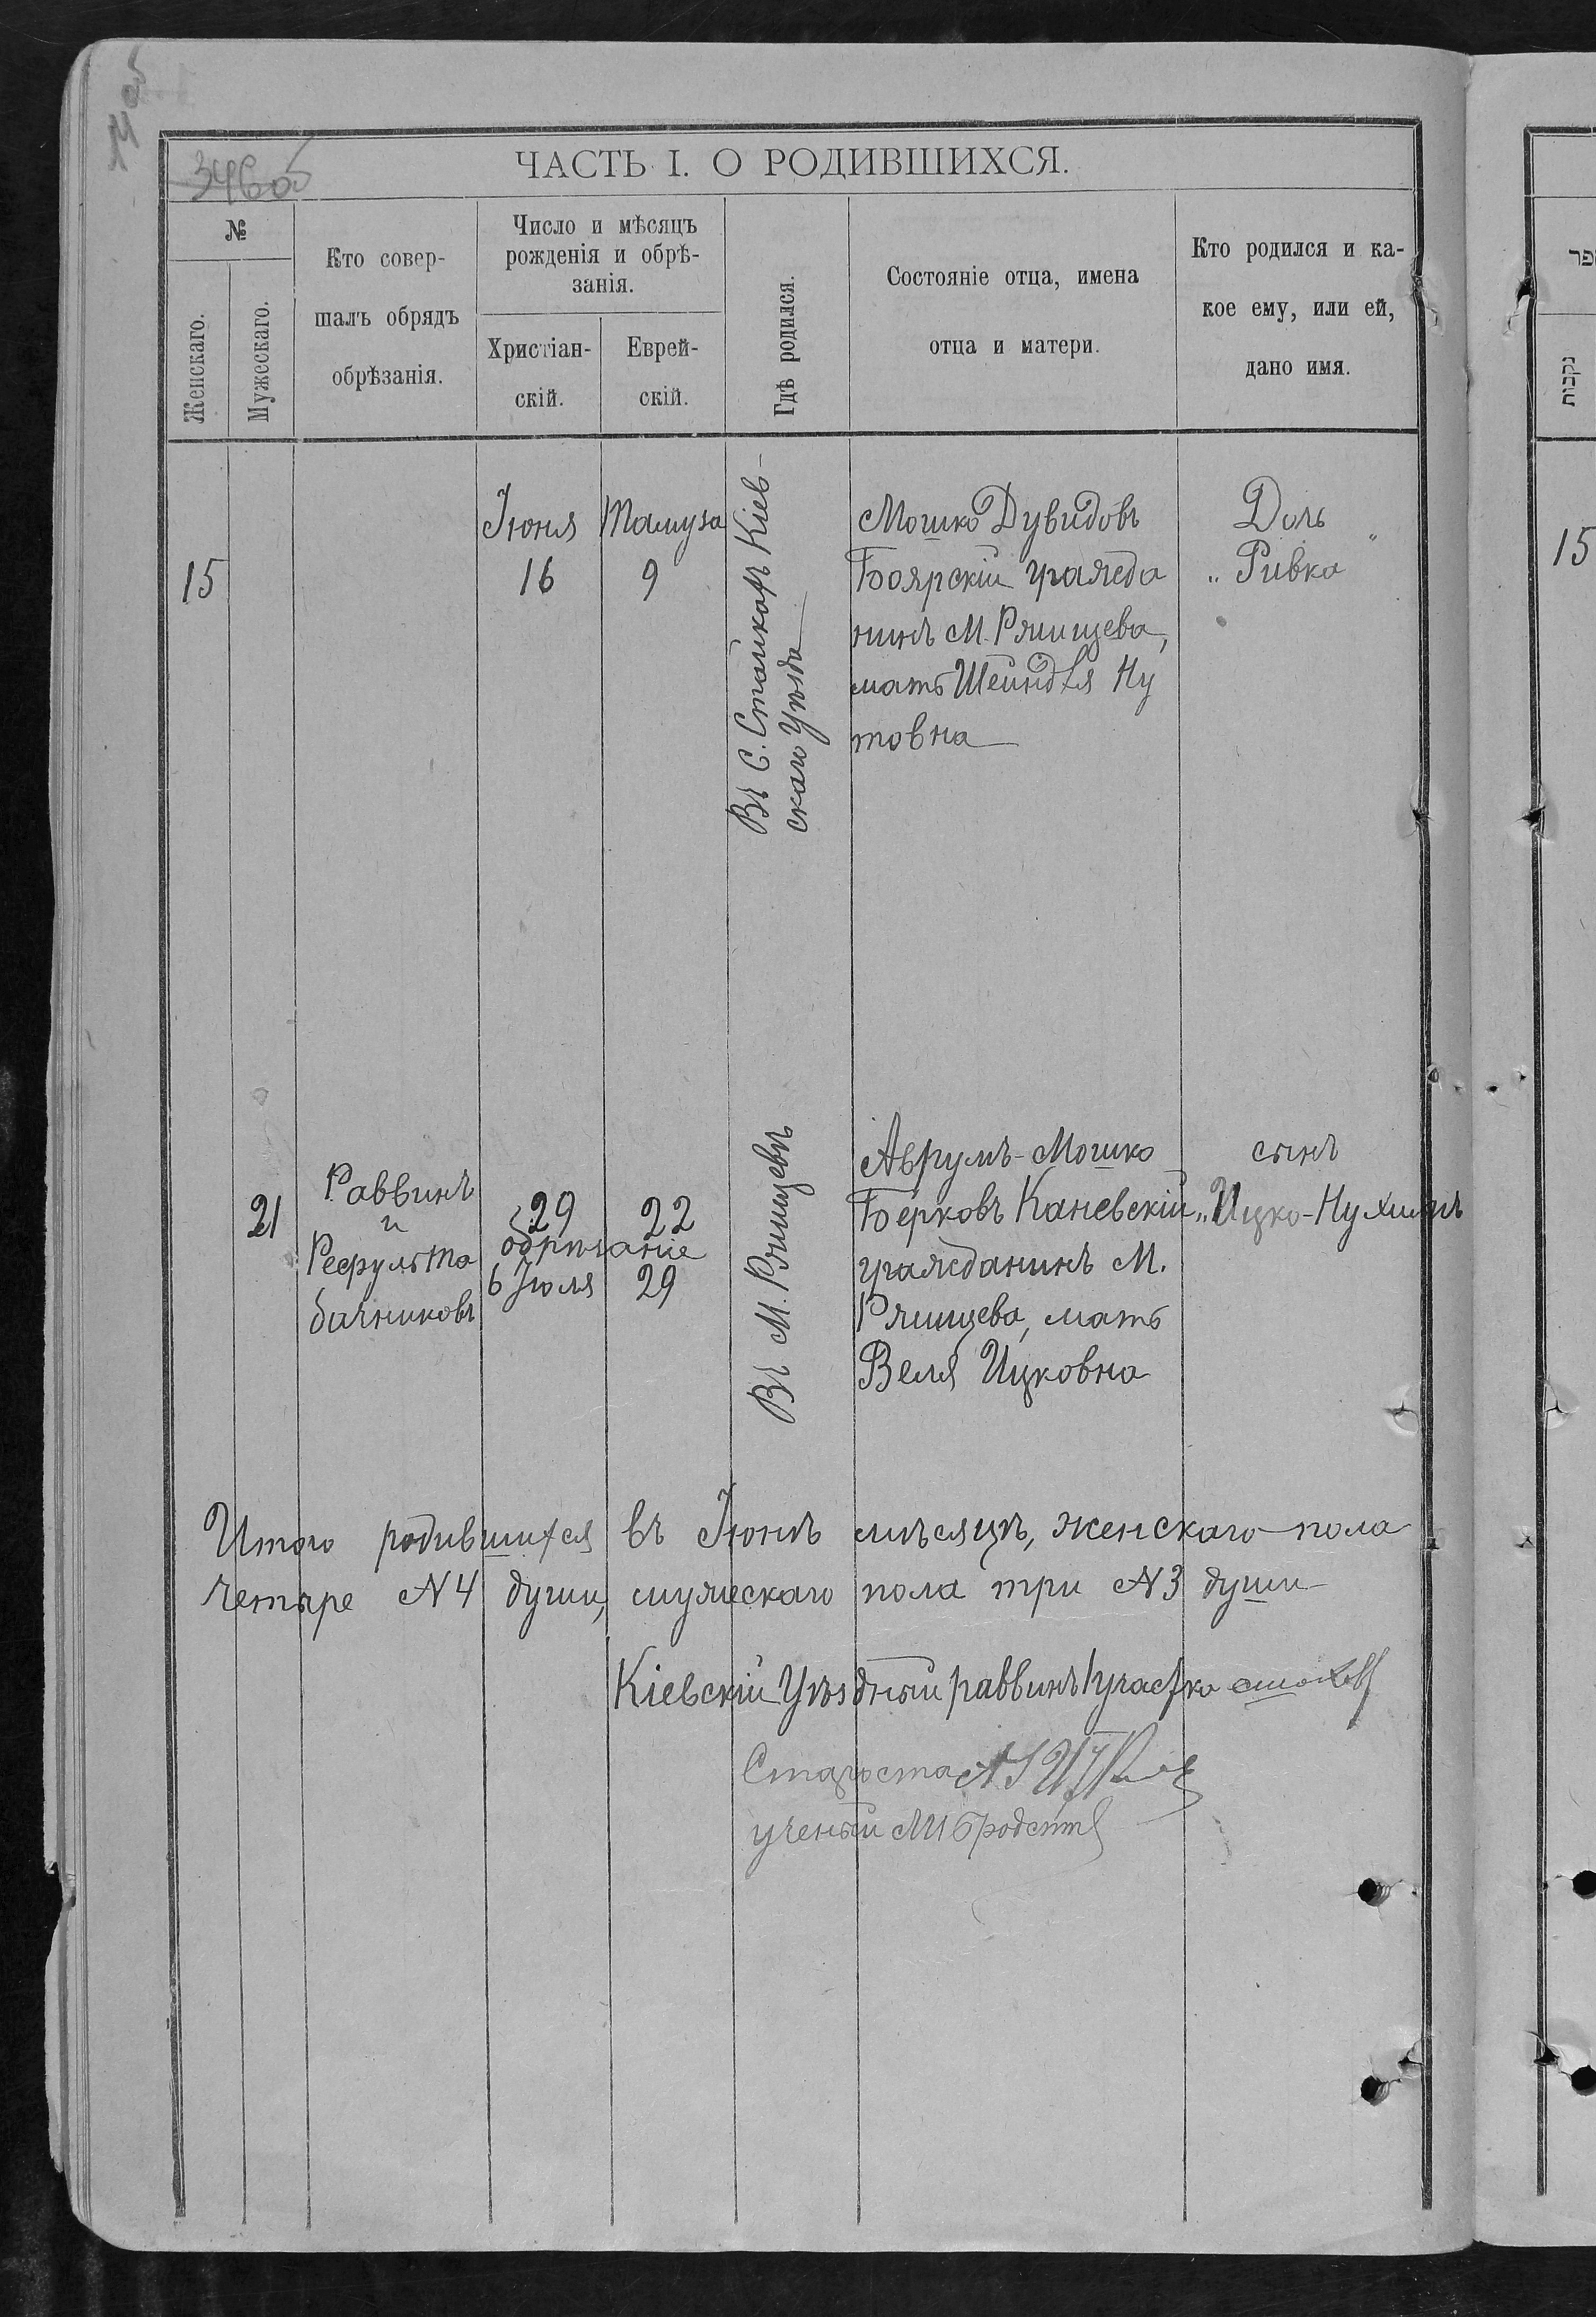 346об
ЧАСТЬ I. О РОДИВШИХСЯ.
№
Женскаго.
Мужескаго.
Кто совер-
шалъ обрядъ
обрѣзанія.
Число и мѣсяцъ
рожденія и обрѣ-
занія.
Христіан-
скій.
Еврей-
скій.
Гдѣ родился.
Состояніе отца, имена
отца и матери.
Кто родился и ка-
кое ему, или ей,
дано имя.
15
Іюня
16
Тамуза
9
Въ С. Стайкахъ Кіев-
скаго Уѣзда
Мошко Дувидовъ
Боярскій гражда
нинъ М. Ржищева,
мать Шейндля Ну
товна
Дочь
„Ривка"
21
Раввинъ
и
29
22
обрѣзаніе
6 Іюля
29
Въ М. Ржищевѣ
Аврумъ-Мошко
Берковъ Каневскій
гражданинъ М.
Ржищева, мать
Веля Ицковна
сынъ
„Ицко-Нухимъ
Итого родившихся въ Іюнѣ мѣсяцѣ, женскаго пола
четыре N4 души, мужескаго пола три N3 души
Кіевскій Уѣздный раввинъ 1 участка
Староста
ученый
15